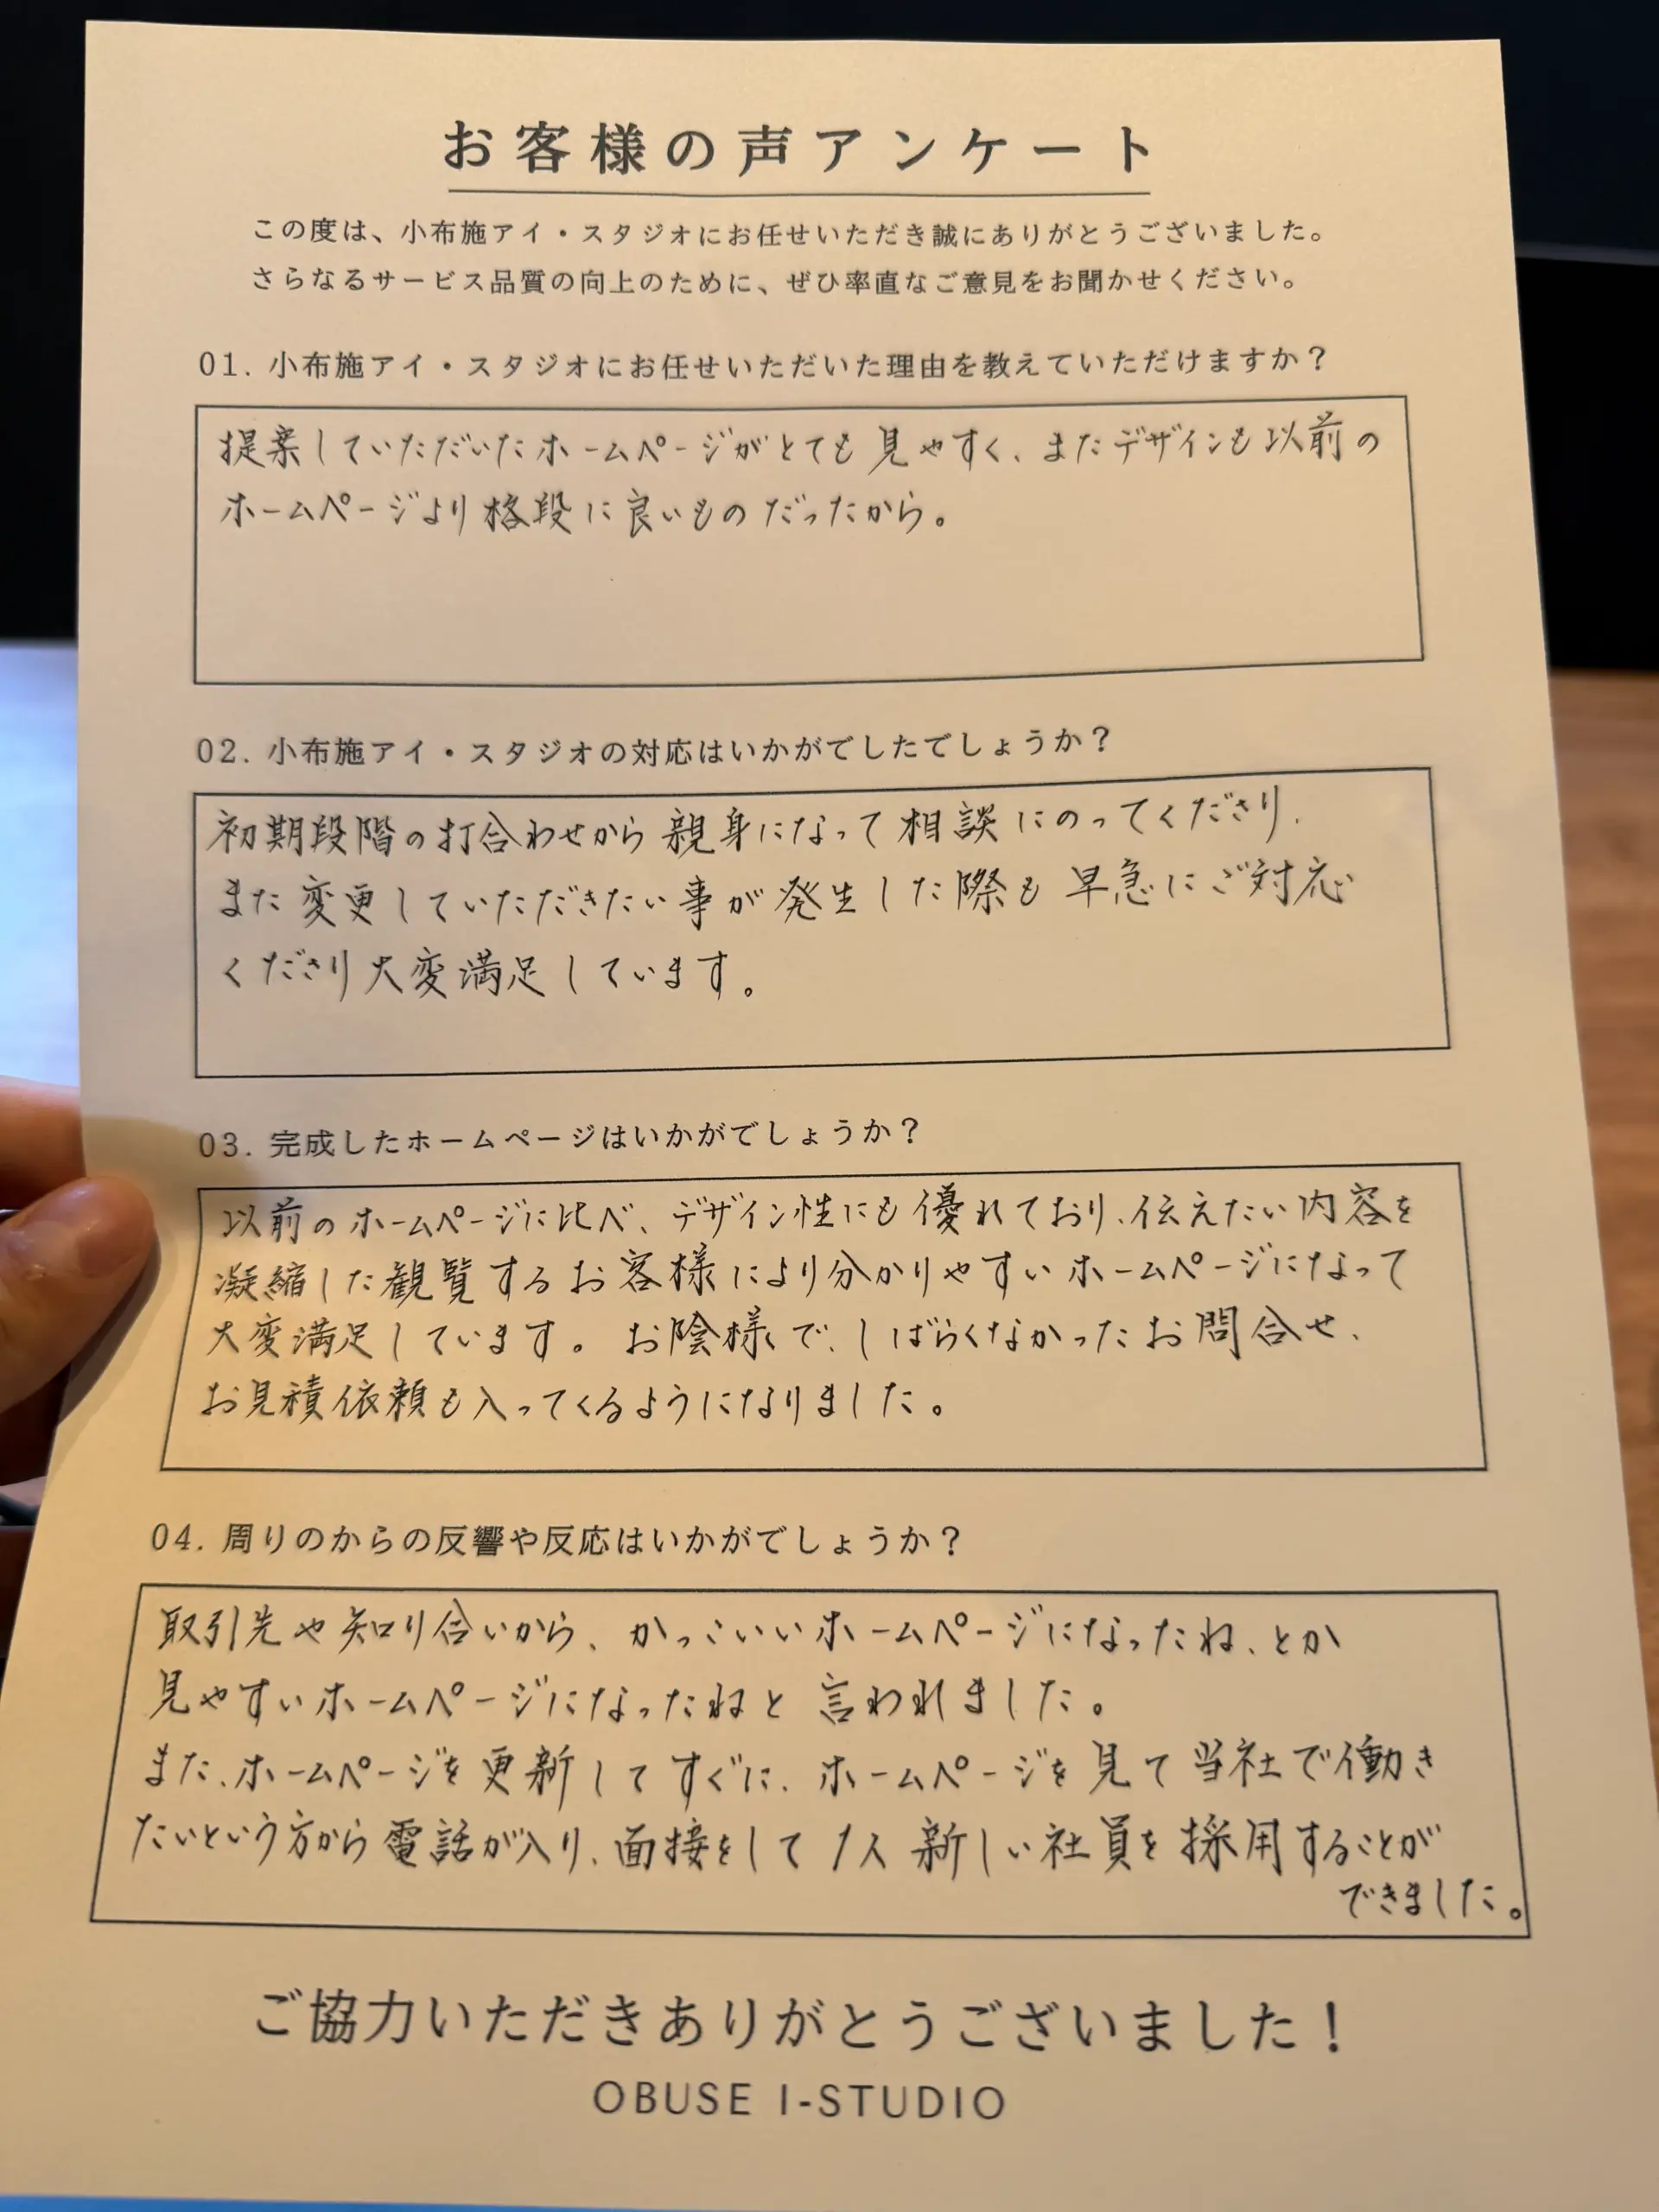 お客様の声アンケート
この度は、小布施アイ・スタジオにお任せいただき誠にありがとうございました。
さらなるサービス品質の向上のために、ぜひ率直なご意見をお聞かせください。
01. 小布施アイ・スタジオにお任せいただいた理由を教えていただけますか？
提案していただいたホームページがとても見やすく、またデザインも以前の
ホームページより格段に良いものだったから。
02. 小布施アイ・スタジオの対応はいかがでしたでしょうか？
初期段階の打合わせから親身になって相談にのってくださり、
また変更していただきたい事が発生した際も早急にご対応
くださり大変満足しています。
03. 完成したホームページはいかがでしょうか？
以前のホームページに比べ、デザイン性にも優れており、伝えたい内容を
凝縮した観覧するお客様により分かりやすいホームページになって
大変満足しています。お陰様で、しばらくなかったお問合せ、
お見積依頼も入ってくるようになりました。
04. 周りのからの反響や反応はいかがでしょうか？
取引先や知り合いから、かっこいいホームページになったね、とか
見やすいホームページになったねと言われました。
また、ホームページを更新してすぐに、ホームページを見て当社で働き
たいという方から電話が入り、面接をして1人新しい社員を採用することが
できました。
ご協力いただきありがとうございました！
OBUSE I-STUDIO